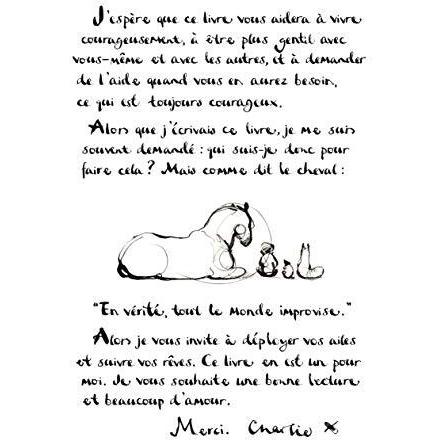 J'espère que ce livre vous aidera à vivre
courageusement, à être plus gentil avec
vous-même et avec les autres, et à demander
de l'aide quand vous en aurez besoin,
ce qui est toujours courageux.
Alors que j'écrivais ce livre, je me suis
souvent demandé : qui suis-je donc pour
faire cela ? Mais comme dit le cheval :
"En vérité, tout le monde improvise."
Alors je vous invite à déployer vos ailes
et suivre vos rêves. Ce livre en est un pour
moi. Je vous souhaite une bonne lecture
et beaucoup d'amour.
Merci. Charlie X